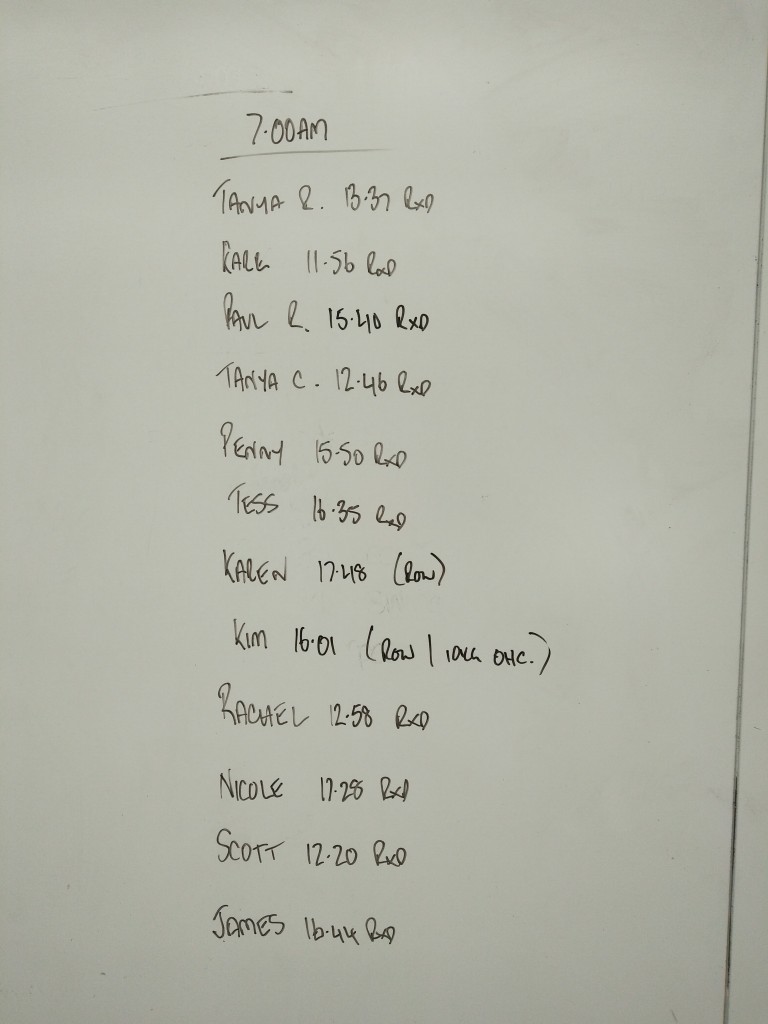 7.00AM
TANYA R. 13.37 RXD
KARL 11.56 RXD
PAUL R. 15.40 RXD
TANYA C. 12.46 RXD
PENNY 15.50 RXD
TESS 16.35 RXD
KAREN 17.48 (ROW)
KIM 16.01 (ROW | 10KG OHC.)
RACHAEL 12.58 RXD
NICOLE 17.28 RXD
SCOTT 12.20 RXD
JAMES 16.44 RXD